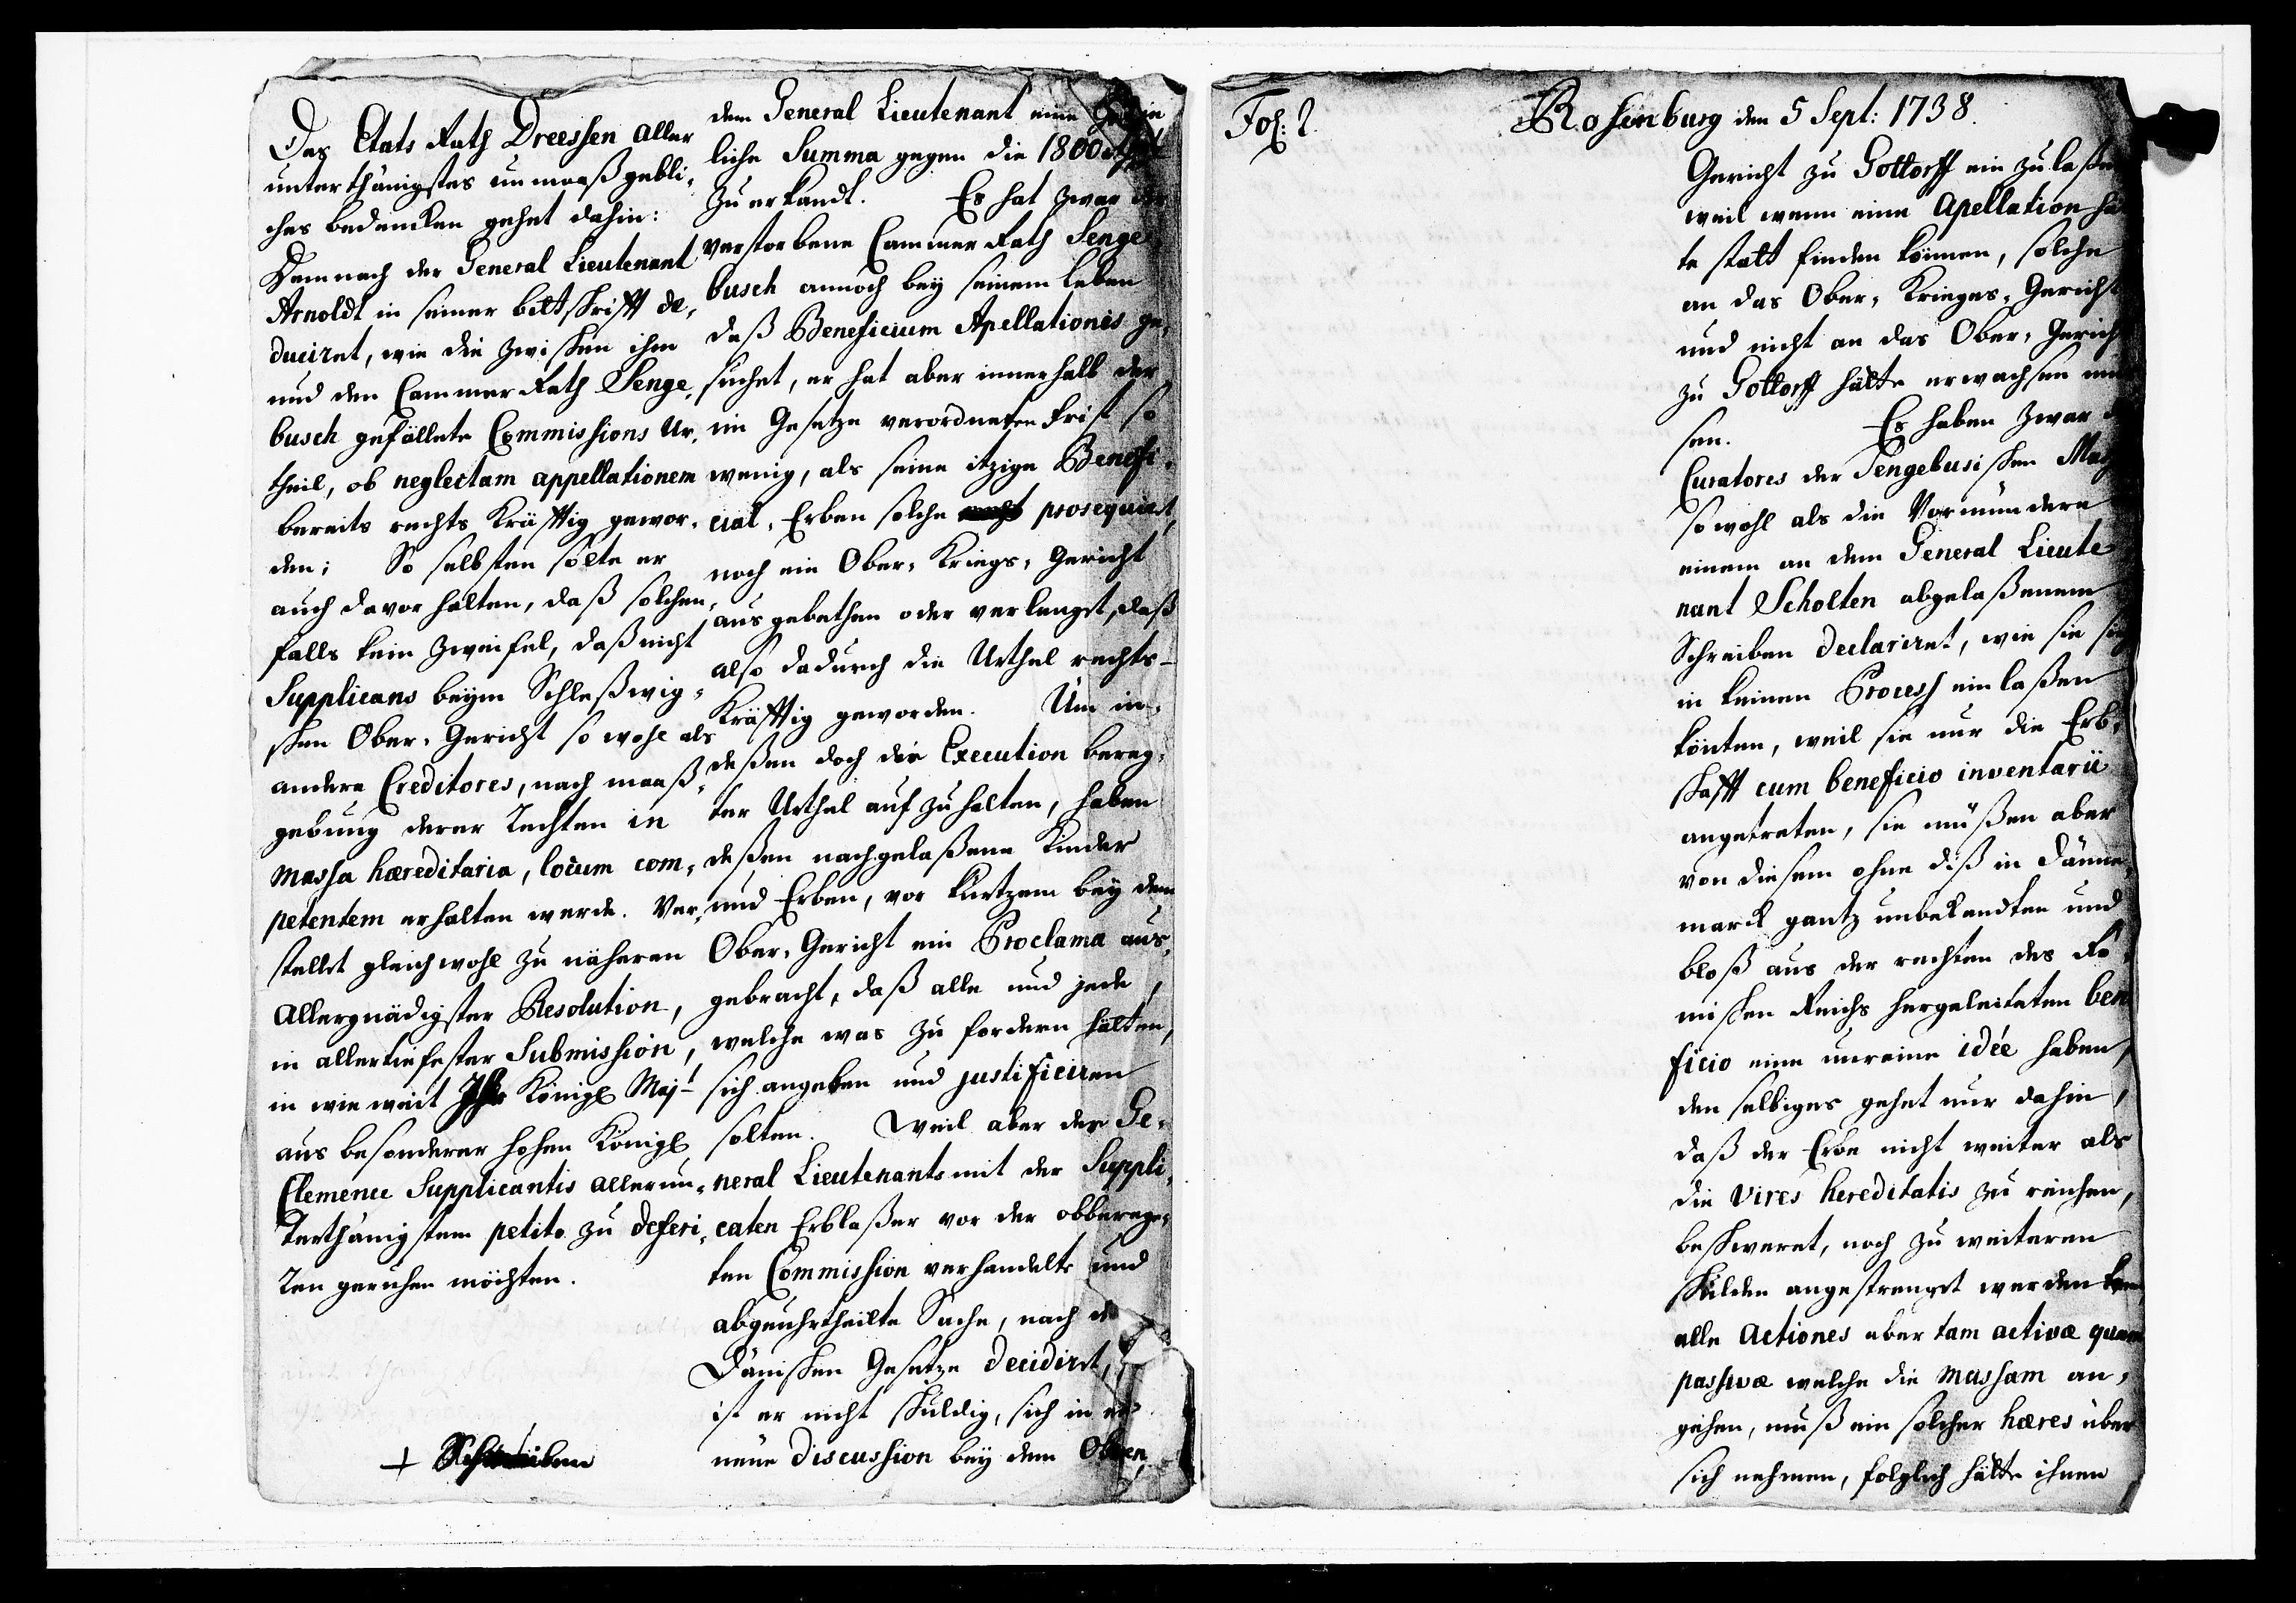 Des Etats Rath Dreessen aller
unterthänigstes unmaaßgebli-
ches bedencken gehet dahin:
Demnach der General Lieutenant
Arnoldt in seiner bittschrifft de-
duciret, wie die zwischen ihm
und den Cammer Rath Senge-
busch gefällete Commissions Ur-
theil, ob neglectam appellationem
bereits rechts kräfftig gewor-
den; So selbsten solte er
auch davor halten, daß solchen-
falls kein Zweifel, daß nicht
Supplicans beym Schleßwig-
schen Ober-Gericht so wohl als
andere Creditores, nach maaß-
gebung derer Rechten in
massa hæreditaria, locum com-
petentem erhalten werde. Ver-
stellet gleichwohl zu näheren
Allergnädigster Resolution,
in allertiefester Submission,
in wie weit Ihr Königl Majt
aus besonderer hohen Königl
Clemence Supplicantis allerun-
terthänigstem petito zu deferi-
ren geruhen möchten.
+ Schreiben
dem General Lieutenant eine
liche Summa gegen die 1800
zuerkandt. Es hat zwar der
verstorbene Cammer Rath Senge-
busch annoch bey seinem leben
daß Beneficium Apellationis ge-
suchet, er hat aber innerhalb der
im Gesetze verordneten frist so
wenig, als seine itzige Benefi-
cial-Erben solche nicht prosequiret,
noch ein Ober-Kriegs-Gericht
ausgebethen oder verlanget, daß
also dadurch die Urthel rechts-
kräfftig geworden. Um in-
deßen doch die Execution bereg-
ter Urthel aufzuhalten, haben
deßen nachgelaßene Kinder
und Erben, vor kurtzem bey dem
Ober-Gericht ein Proclama aus-
gebracht, daß alle und jede,
welche was zu fordern hätten,
sich angeben und justificiren
solten. Weil aber der Ge-
neral Lieutenants mit der Suppli-
caten Erblaßer vor der obberege-
ten Commission verhandelte und
abgeuhrtheilte Sache, nach dem
Dänischen Gesetze decidiret,
ist er nicht schuldig, sich in
neue discussion bey dem Ober-
Fol: 2.
Rosenburg den 5 Sept: 1738.
Gericht zu Gottorff ein zu laßen
weil wenn eine Apellation hä-
te statt finden können, solche
an das Ober-Krieges-Gericht
und nicht an das Ober-Gericht
zu Gottorff hätte erwachsen müs-
sen. Es haben zwar die
Curatores der Sengebuschen Maß
sowohl als die Vormündere
einem an dem General Lieute-
nant Scholten abgelaßenem
Schreiben declariret, wie sie sich
in keinen Process einlaßen
könten, weil sie nur die Erb-
schafft cum beneficio inventarii
angetreten, sie müßen aber
von diesem ohne diß in Dänne-
marck gantz unbekandten und
bloß aus der rechten des Rö-
mischen Reichs hergeleiteten bene-
ficio eine unreine idée haben,
den selbiges gehet nur dahin,
daß der Erbe nicht weiter als
die vires hereditatis zu reichen,
beschweret, noch zu weiteren
schulden angestrenget werden kan
alle Actiones aber tam activæ quam
passivæ welche die massam an-
gehen, muß ein solcher hæres über
sich nehmen, folglich hätte ihnen